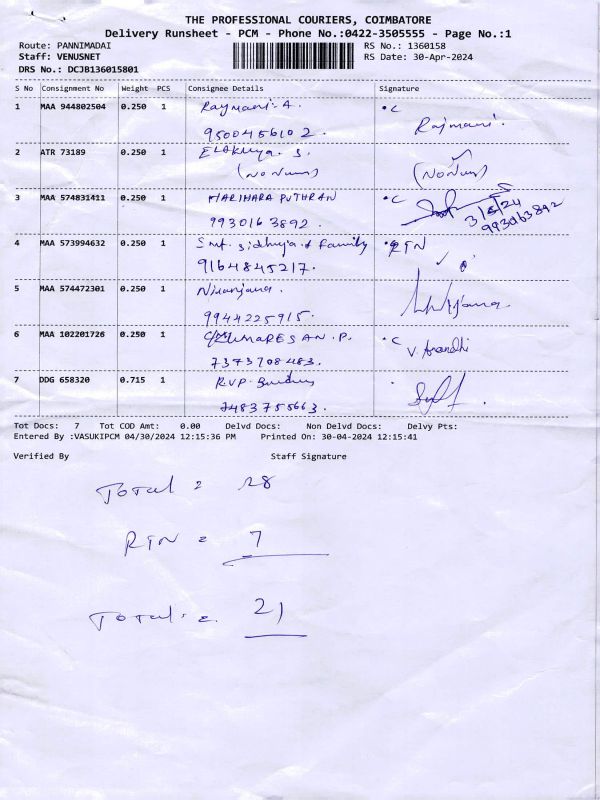 THE PROFESSIONAL COURIERS, COIMBATORE
Delivery Runsheet - PCM - Phone No.:0422-3505555 - Page No.:1
Route: PANNIMADAI RS No.: 1360158
Staff: VENUSNET RS Date: 30-Apr-2024
DRS No.: DCJB136015801
S No Consignment No Weight PCS Consignee Details Signature
1 MAA 944802504 0.250 1 Raymani-A. • C Rajmani.
9500456102.
2 ATR 73189 0.250 1 ELAKIya. S.
(NO Num) (NO Num)
3 MAA 574831411 0.250 1 HARIHARA PUTHRAN • C 3/5/24
9930163892. 993063892
4 MAA 573994632 0.250 1 Smt. sidhuja & family RTN
9164845217.
5 MAA 574472301 0.250 1 Niranjana.
9944225915.
6 MAA 102201726 0.250 1 KUMARESAN.P. • C V. Anandhi
7373708483.
7 DDG 658320 0.715 1 R.V.P.
7483755663.
Tot Docs: 7 Tot COD Amt: 0.00 Delvd Docs: Non Delvd Docs: Delvy Pts:
Entered By :VASUKIPCM 04/30/2024 12:15:36 PM Printed On: 30-04-2024 12:15:41
Verified By Staff Signature
Total = 28
RTN = 7
Total = 21